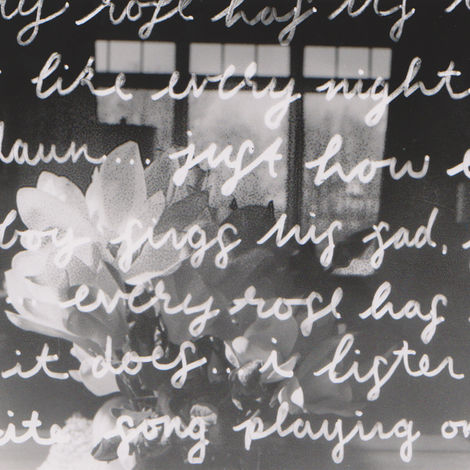 ry rose has its
like every night
dawn... just how e
boy sings his sad,
every rose has
it does.. i listen
ite song playing on